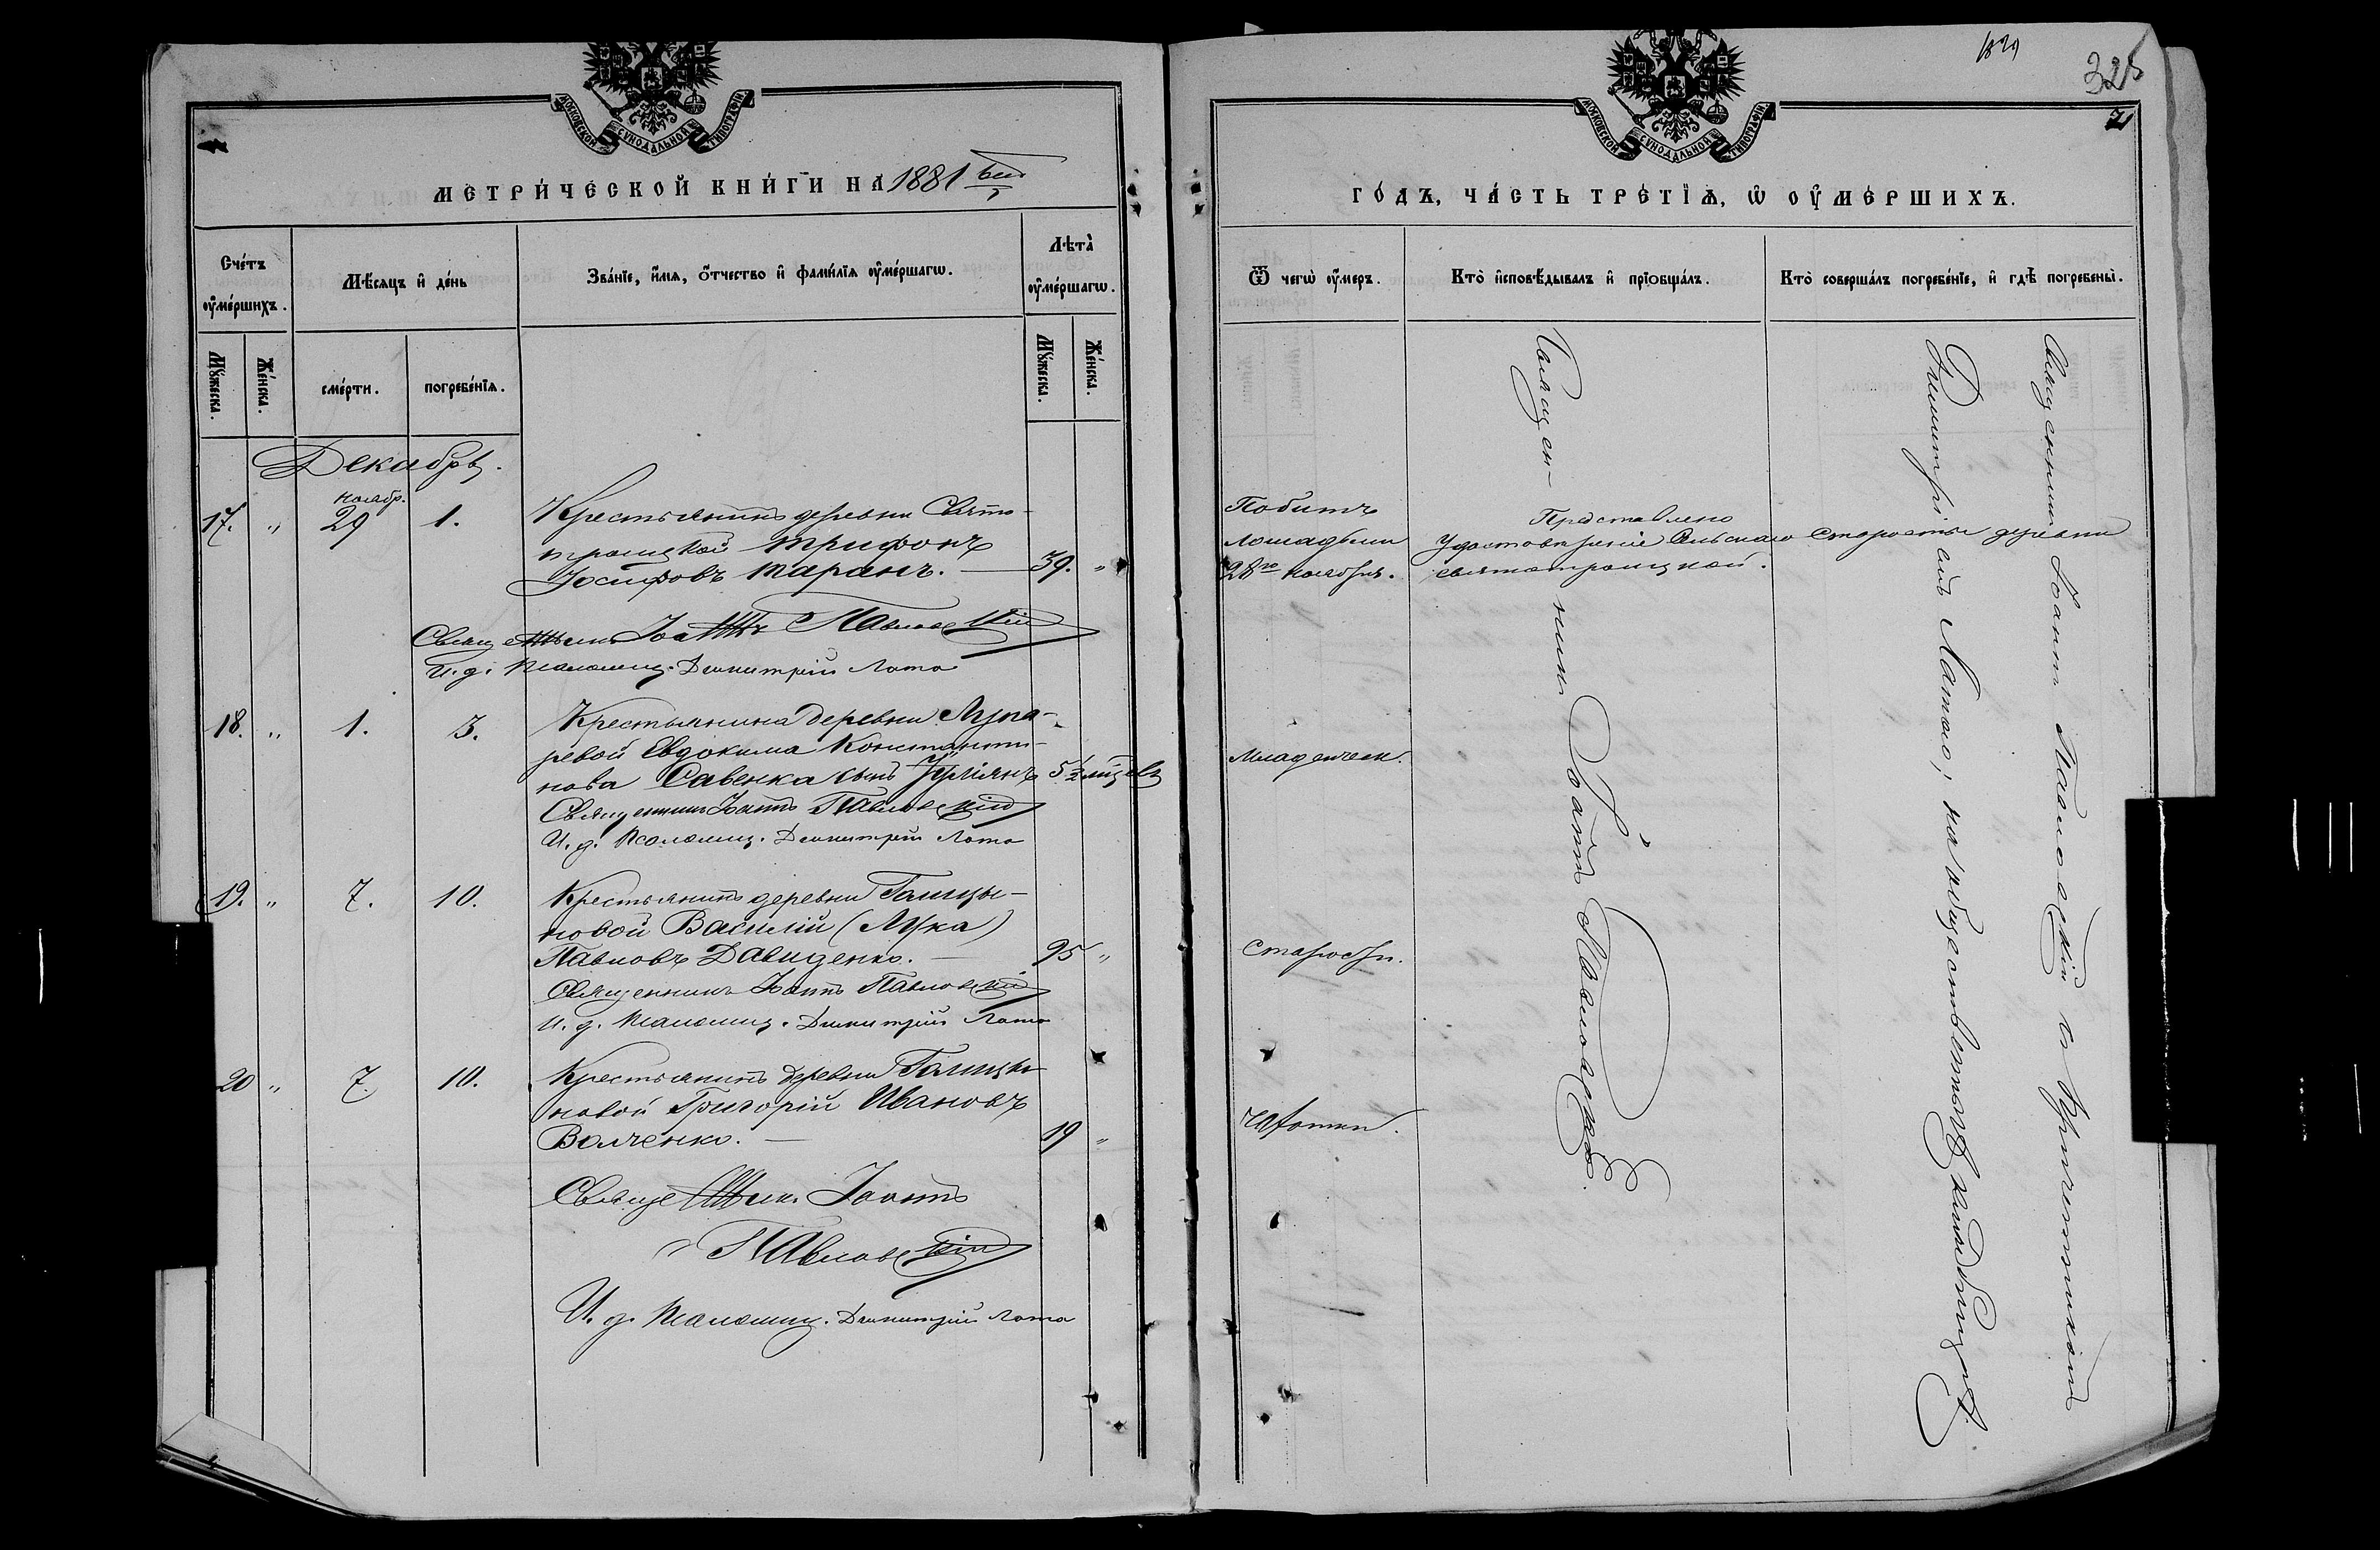 МОСКОВСКОЙ СѴНОДАЛЬНОЙ ТИПОГРАФІИ
МЕТРИ́ЧЕСКОЙ КНИ́ГИ НА 1881 ый
Сче́тъ ᲂу҆ме́ршихъ.
Мѣ́сяцъ и҆ де́нь
Зва́нїе, и҆́мѧ, ѻ҆́тчество и҆ фамѝлїѧ ᲂу҆ме́ршагѡ.
Лѣта̀ ᲂу҆ме́ршагѡ.
Мꙋ́жеска.
Же́нска.
сме́рти.
погребе́нїѧ.
Мꙋ́жеска.
Же́нска.
Декабрь.
ноябр.
17. " 29 1. Крестьянинъ деревни Свято-
троицкой Трифонъ
Іосифовъ Таранъ. — 39. "
Священникъ Іоаннъ Павловскій
И. д. Псаломщ. Димитрій Лата
18. " 1. 3. Крестьянина деревни Лупа-
ревой Евдокима Константи-
нова Савенка сынъ Іуліанъ 5½ мѣсяцевъ
Священникъ Іоаннъ Павловскій
И. д. Псаломщ. Димитрій Лата
19. " 7. 10. Крестьянинъ деревни Голицы-
новой Василій (Лука)
Павловъ Давиденко. — 95 "
Священникъ Іоаннъ Павловскій
И. д. Псаломщ. Димитрій Лата
20 " 7. 10. Крестьянинъ деревни Голицы-
новой Григорій Ивановъ
Волченко. — 19 "
Священникъ Іоаннъ
Павловскій
И. д. Псаломщ. Димитрій Лата
325
МОСКОВСКОЙ СѴНОДАЛЬНОЙ ТИПОГРАФІИ
ГО́ДЪ, ЧА́СТЬ ТРЕ́ТЇѦ, Ѡ҆ ОУ҆МЕ́РШИХЪ.
Ѿ чегѡ̀ ᲂу҆́меръ.
Кто̀ и҆сповѣ́дывалъ и҆ прїобща́лъ.
Кто̀ соверша́лъ погребе́нїе, и҆ гдѣ̀ погребены̀.
Побитъ
лошадьми
28го ноября.
Представлено
удостовѣреніе Сельскаго Старосты деревни
святотроицкой.
Младенческ.
Старости.
Чахотки.
Священникъ Іоаннъ Павловскій.
Священникъ Іоаннъ Павловскій съ Причетникомъ
Димитріемъ Латою, на общественномъ кладбищѣ.